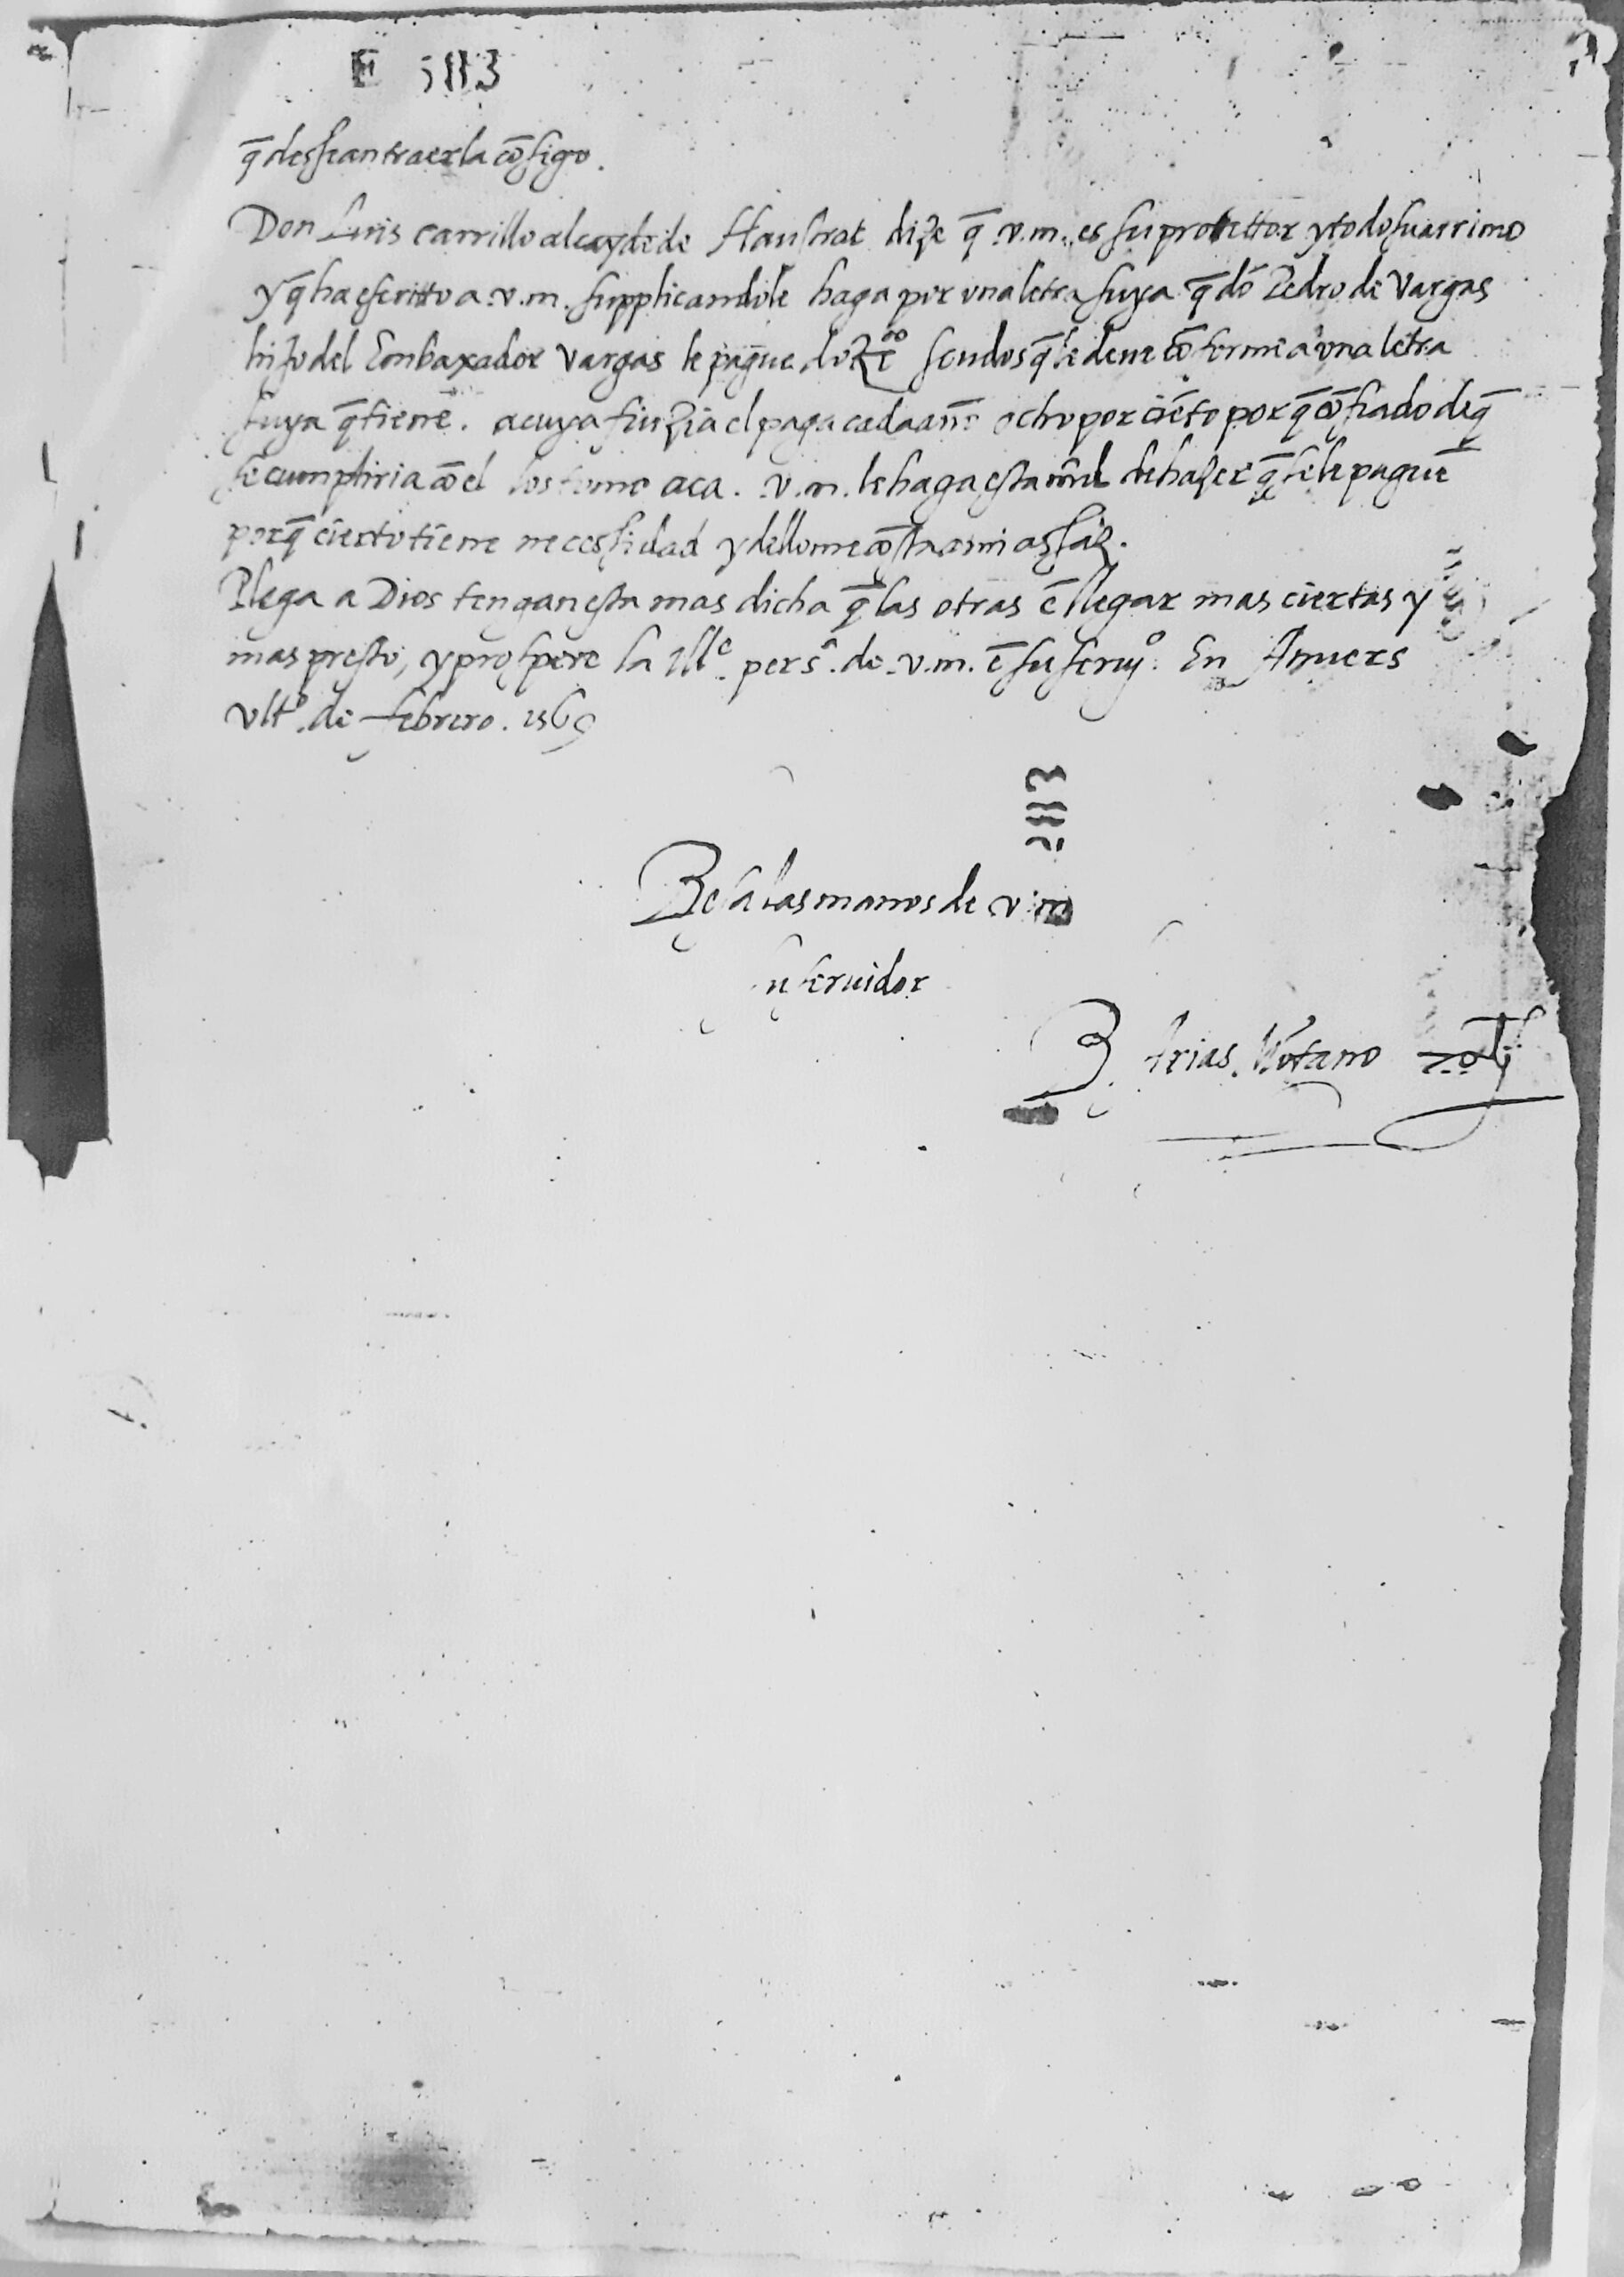 E 5113
q̄ dessean traerla cōsigo.
Don Luis carrillo alcayde de Haustrat dize q̄ .v.m. es su protettor y todo su arrimo
y q̄ ha escritto a .v.m. supplicandole haga por una letra suya q̄ dō Pedro de Vargas
hijo del Embaxador Vargas le pague doze escudos q̄ le deue cōforme a una letra
suya q̄ tiene. a cuya fiuzia el paga cada anno ocho por ciēto porq̄ cōfiado de q̄
se cumpliria cō el los tomo aca. v.m. le haga esta mrd de hazer q̄ se le pague
porq̄ cierto tiene necessidad y dello me cōsta a mi assaz.
Plega a Dios tengan esta mas dicha q̄ las otras ē llegar mas ciertas y
mas presto, y prospere la Ille. pers. de .v.m. ē su seruyo. En Anvers
ulto. de febrero. 1569
5113
Besa las manos de v.m.
su seruidor
B. Arias Mōtano